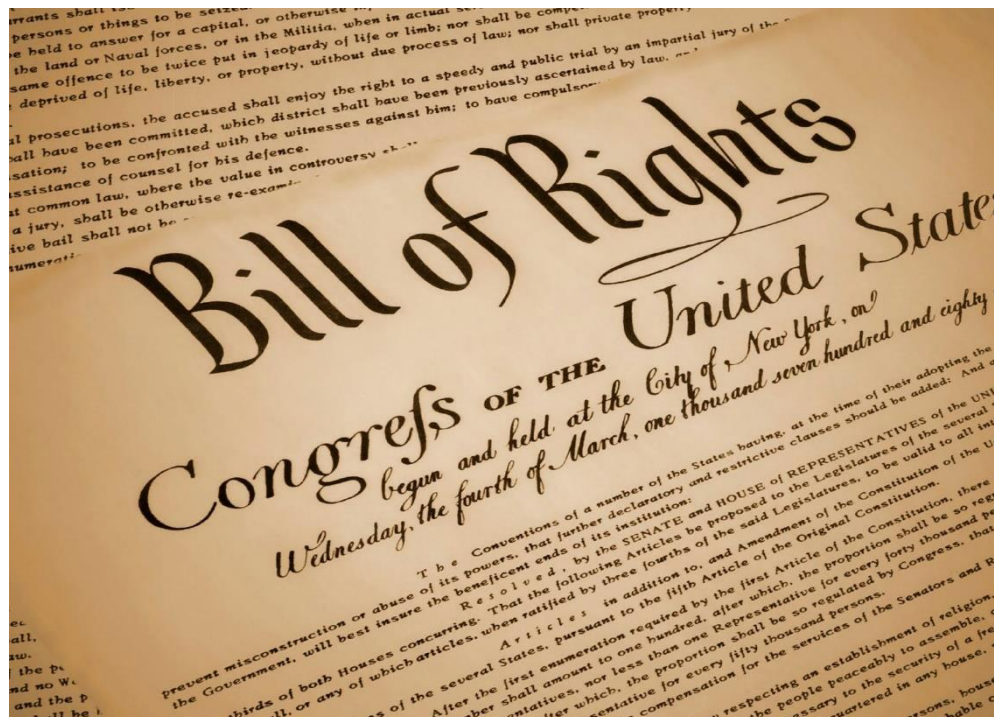 persons or things to be seized
be held to answer for a capital, or otherwise
the land or Naval forces, or in the Militia, when in actual
same offence to be twice put in jeopardy of life or limb; nor shall be
deprived of life, liberty, or property, without due process of law; nor shall private property
prosecutions, the accused shall enjoy the right to a speedy and public trial by an impartial jury of the
have been committed, which district shall have been previously ascertained by law,
to be confronted with the witnesses against him; to have
assistance of counsel for his defence.
common law, where the value in controversy
a jury, shall be otherwise
bail shall not be
Bill of Rights
Congreſs OF THE United States
begun and held at the City of New York, on
Wednesday, the fourth of March, one thousand seven hundred and eighty
The Conventions of a number of the States having, at the time of their adopting the
prevent misconstruction or abuse of its powers, that further declaratory and restrictive clauses should be added: And
the Government, will best insure the beneficent ends of its institution:
Resolved, by the SENATE and HOUSE of REPRESENTATIVES of the
of both Houses concurring. That the following Articles be proposed to the Legislatures of the several
all, or any of which articles, when ratified by three fourths of the said Legislatures, to be valid to all
Articles in addition to, and Amendment of the Constitution of the
of the several States, pursuant to the fifth Article of the Original Constitution.
After the first enumeration required by the first Article of the Constitution, there
shall amount to one hundred, after which, the proportion shall be so
nor less than one Representative for every forty thousand
which, the proportion shall be so regulated by Congress, that
for every fifty thousand persons.
compensation for the services of the Senators and
respecting an establishment of religion,
the people peaceably to assemble,
to the security of a
in any house,
persons,
all,
the
and no
and the